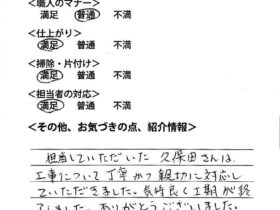 <職人のマナー>
満足 普通 不満
<仕上がり>
満足 普通 不満
<掃除・片付け>
満足 普通 不満
<担当者の対応>
満足 普通 不満
<その他、お気づきの点、紹介情報>
担当していただいた 久保田さんは、
工事について丁寧かつ親切に対応し
ていただきました。気持良く工期が終
了しました。ありがとうございました。